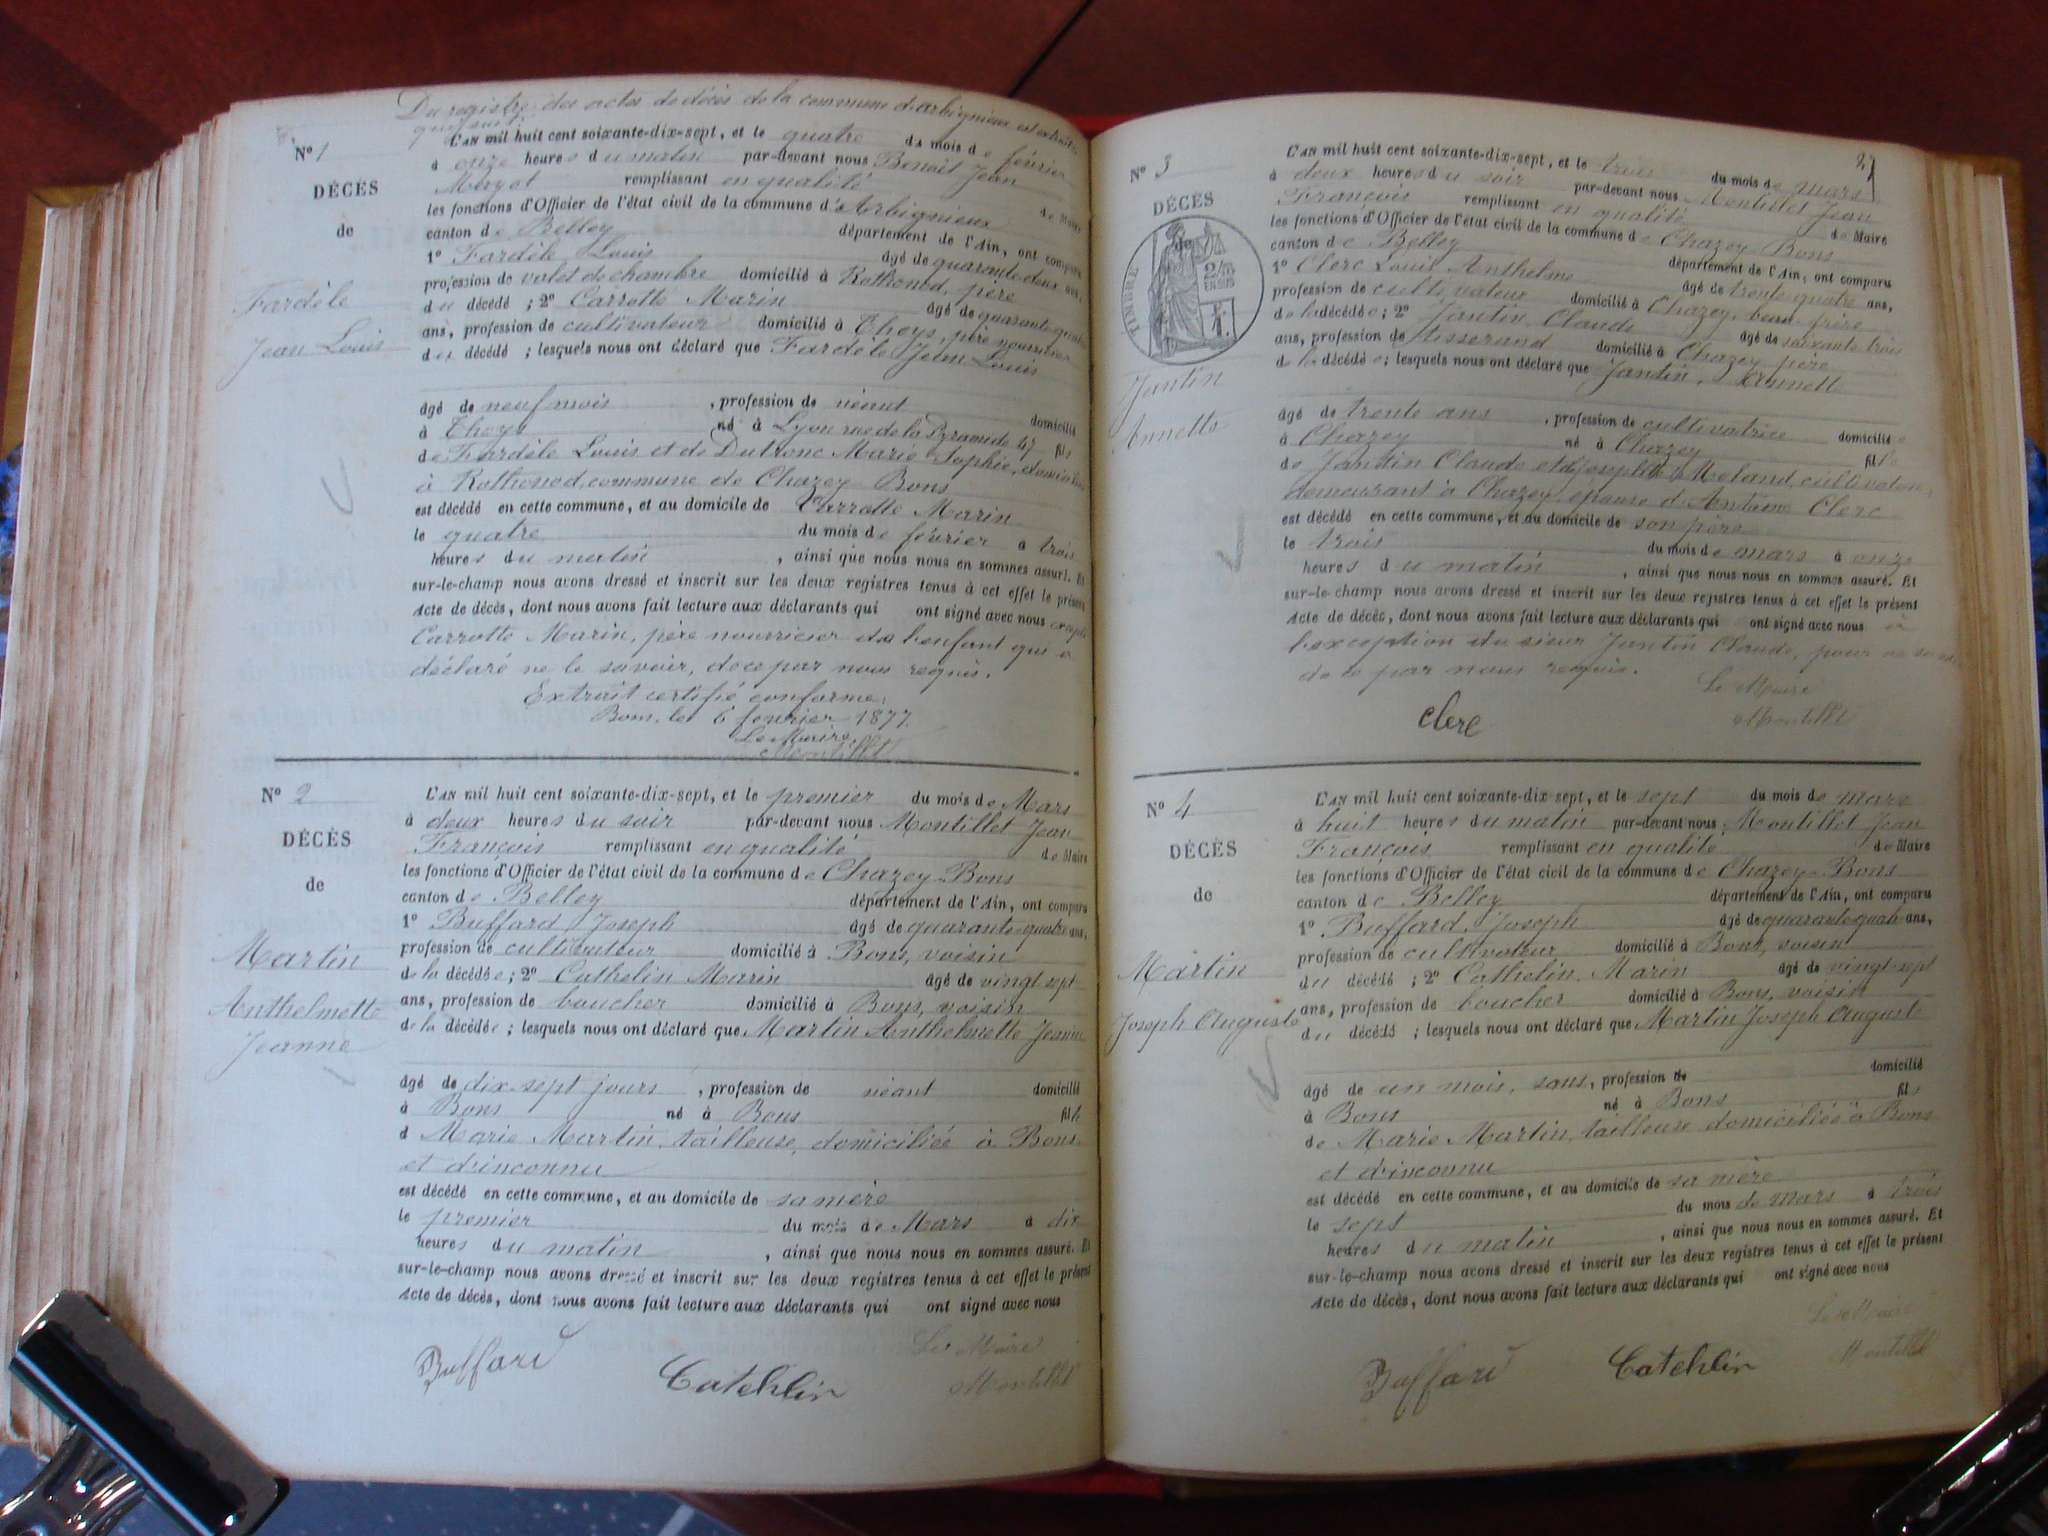 Du registre des actes de décès de la commune d'arbignieux est extrait
que suit:
No 1
DÉCÈS
de
Fardèle
Jean Louis
L'AN mil huit cent soixante-dix-sept, et le quatre du mois de février
à onze heures du matin par-devant nous Benoît Jean
remplissant en qualité de Maire
les fonctions d'Officier de l'état civil de la commune d'Arbignieux
canton de Belley département de l'Ain, ont comparu
1° Fardèle Louis âgé de quarante deux ans,
profession de valet de chambre domicilié à Rothonod, père
du décédé ; 2° Carrotte Marin âgé de quarante quatre
ans, profession de cultivateur domicilié à Thoys, père nourricier
du décédé ; lesquels nous ont déclaré que Fardèle Jean Louis
âgé de neuf mois , profession de néant domicilié
à Thoys né à Lyon rue de la Pyramide 47 fils
de Fardèle Louis et de Dutronc Marie Sophie, domiciliés
à Rothonod, commune de Chazey-Bons
est décédé en cette commune, et au domicile de Carrotte Marin
le quatre du mois de février à trois
heures du matin , ainsi que nous nous en sommes assuré. Et
sur-le-champ nous avons dressé et inscrit sur les deux registres tenus à cet effet le présent
Acte de décès, dont nous avons fait lecture aux déclarants qui ont signé avec nous excepté
Carrotte Marin, père nourricier de l'enfant qui a
déclaré ne le savoir, de ce par nous requis.
Extrait certifié conforme:
Bons, le 6 février 1877.
Le Maire,
Montillet
No 2
DÉCÈS
de
Martin
Anthelmette
Jeanne
L'AN mil huit cent soixante-dix-sept, et le premier du mois de Mars
à deux heures du soir par-devant nous Montillet Jean
François remplissant en qualité de Maire
les fonctions d'Officier de l'état civil de la commune de Chazey-Bons
canton de Belley département de l'Ain, ont comparu
1° Buffard Joseph âgé de quarante-quatre ans,
profession de cultivateur domicilié à Bons, voisin
de la décédée ; 2° Cathelin Marin âgé de vingt-sept
ans, profession de boucher domicilié à Bons, voisin
de la décédée ; lesquels nous ont déclaré que Martin Anthelmette Jeanne
âgé de dix-sept jours , profession de néant domicilié
à Bons né à Bons fille
d Marie Martin, tailleuse, domiciliée à Bons
et d'inconnu
est décédé en cette commune, et au domicile de sa mère
le premier du mois de Mars à dix
heures du matin , ainsi que nous nous en sommes assuré. Et
sur-le-champ nous avons dressé et inscrit sur les deux registres tenus à cet effet le présent
Acte de décès, dont nous avons fait lecture aux déclarants qui ont signé avec nous
Le Maire
Buffard Catehlin Montillet
2
No 3
DÉCÈS
de
TIMBRE
2/10
EN SUS
Jantin
Annette
L'AN mil huit cent soixante-dix-sept, et le trois du mois de mars
à deux heures du soir par-devant nous Montillet Jean
François remplissant en qualité de Maire
les fonctions d'Officier de l'état civil de la commune de Chazey-Bons
canton de Belley département de l'Ain, ont comparu
1° Clerc Louis Anthelme âgé de trente-quatre ans,
profession de cultivateur domicilié à Chazey, beau-frère
de la décédée ; 2° Jantin Claude âgé de soixante-trois
ans, profession de tisserand domicilié à Chazey, père
de la décédée ; lesquels nous ont déclaré que Jantin, Annett
âgé de trente ans , profession de cultivatrice domicilié
à Chazey né à Chazey fille
de Jantin Claude et de Josephte Meland, cultivateurs,
demeurant à Chazey, épouse d'Antoine Clerc
est décédé en cette commune, et au domicile de son père
le trois du mois de mars à onze
heures du matin , ainsi que nous nous en sommes assuré. Et
sur-le-champ nous avons dressé et inscrit sur les deux registres tenus à cet effet le présent
Acte de décès, dont nous avons fait lecture aux déclarants qui ont signé avec nous à
l'exception du sieur Jantin Claude, pour ne savoir
de ce par nous requis.
Le Maire
Clerc Montillet
No 4
DÉCÈS
de
Martin
Joseph Auguste
L'AN mil huit cent soixante-dix-sept, et le sept du mois de mars
à huit heures du matin par-devant nous Montillet Jean
François remplissant en qualité de Maire
les fonctions d'Officier de l'état civil de la commune de Chazey-Bons
canton de Belley département de l'Ain, ont comparu
1° Buffard, Joseph âgé de quarante-quatre ans,
profession de cultivateur domicilié à Bons, voisin
du décédé ; 2° Cathelin, Marin âgé de vingt-sept
ans, profession de boucher domicilié à Bons, voisin
du décédé ; lesquels nous ont déclaré que Martin Joseph Auguste
âgé de un mois, sans, profession de domicilié
à Bons né à Bons fils
de Marie Martin, tailleuse domiciliée à Bons
et d'inconnu
est décédé en cette commune, et au domicile de sa mère
le sept du mois de mars à trois
heures du matin , ainsi que nous nous en sommes assuré. Et
sur-le-champ nous avons dressé et inscrit sur les deux registres tenus à cet effet le présent
Acte de décès, dont nous avons fait lecture aux déclarants qui ont signé avec nous
Le Maire
Buffard Catehlin Montillet